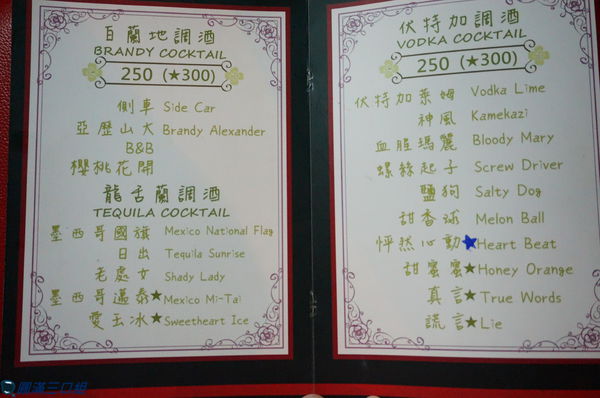 白蘭地調酒
BRANDY COCKTAIL
250 (★300)
側車 Side Car
亞歷山大 Brandy Alexander
B&B
櫻桃花開
龍舌蘭調酒
TEQUILA COCKTAIL
墨西哥國旗 Mexico National Flag
日出 Tequila Sunrise
老處女 Shady Lady
墨西哥邁泰★Mexico Mi-Tai
愛玉冰★Sweetheart Ice
伏特加調酒
VODKA COCKTAIL
250 (★300)
伏特加萊姆 Vodka Lime
神風 Kamekazi
血腥瑪麗 Bloody Mary
螺絲起子 Screw Driver
鹽狗 Salty Dog
甜香球 Melon Ball
怦然心動★Heart Beat
甜蜜蜜★Honey Orange
真言★True Words
謊言★Lie
圓滿三口組